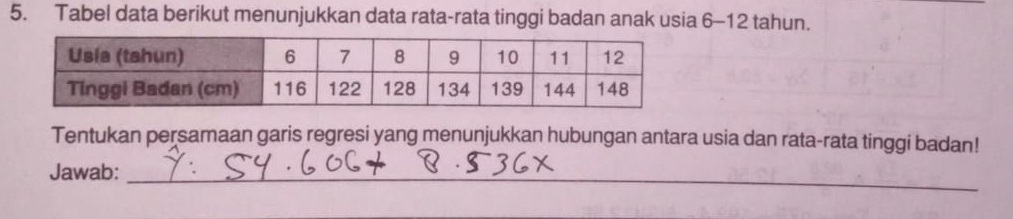 5. Tabel data berikut menunjukkan data rata-rata tinggi badan anak usia 6–12 tahun.
Usia (tahun) 6 7 8 9 10 11 12
Tinggi Badan (cm) 116 122 128 134 139 144 148
Tentukan persamaan garis regresi yang menunjukkan hubungan antara usia dan rata-rata tinggi badan!
Jawab: Ŷ: 54.606+ 8.536X